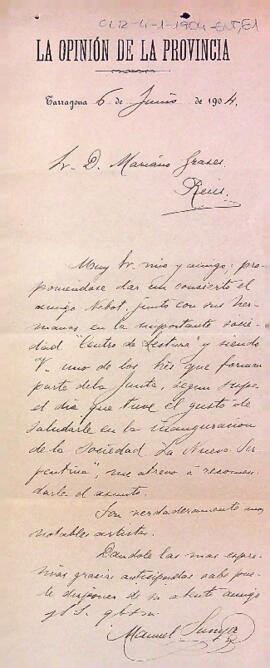 CLR-4-1-1904-ENT,E1
LA OPINIÓN DE LA PROVINCIA
Tarragona 6 de Junio de 1904.
Sr. D. Mariano Grases.
Reus.
Muy Sr. mio y amigo; pro-
poniendose dar un concierto el
amigo Nibot, junto con sus her-
manas en la importante socie-
dad "Centro de Lectura" y siendo
V. uno de los que forman
parte de la Junta, segun supe
el dia que tuve el gusto de
saludarle en la inauguracion
de la Sociedad "La Nueva
", me atrevo a recomen-
darle el asunto.
Son verdaderamente muy
notables artistas.
Dandole las mas expre-
sivas gracias anticipadas sabe pue-
de disponer de su atento amigo
y S. S. q b s m
Manuel Sunyer